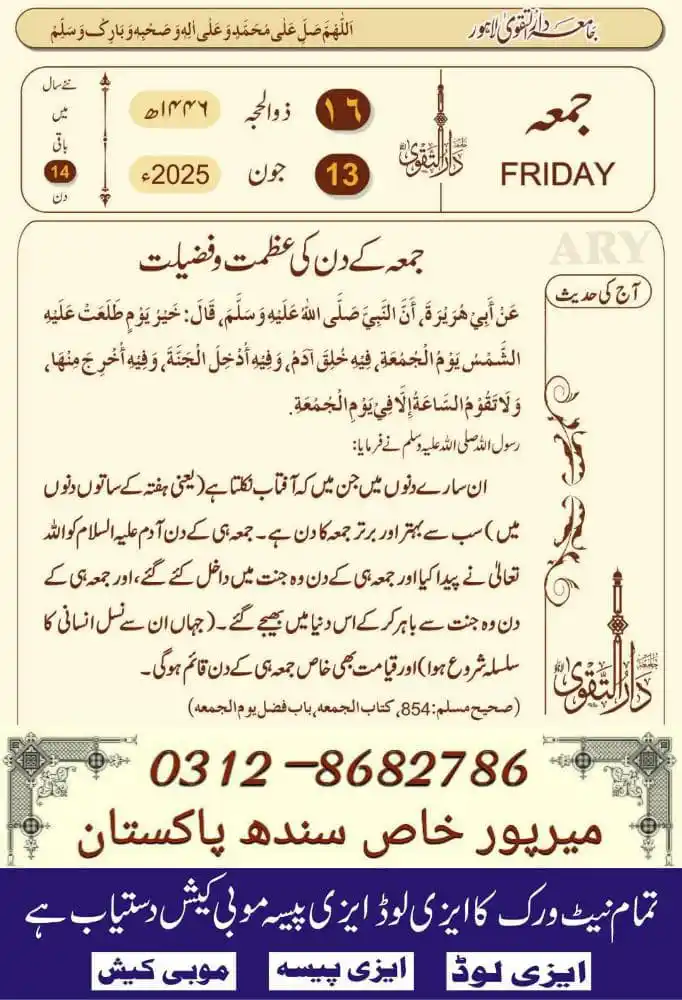 جامعہ دارالتقویٰ لاہور
اَللّٰهُمَّ صَلِّ عَلٰی مُحَمَّدٍ وَّعَلٰی اٰلِهٖ وَصَحْبِهٖ وَبَارِكْ وَسَلِّمْ
جمعہ
FRIDAY
جامعہ دارالتقویٰ
۱٦ ذوالحجہ ۱۴۴۶ھ
13 جون 2025ء
نئے سال
میں
باقی
14
دن
ARY
آج کی حدیث
جمعہ کے دن کی عظمت و فضیلت
عَنْ أَبِيْ هُرَيْرَةَ، أَنَّ النَّبِيَّ صَلَّى اللهُ عَلَيْهِ وَسَلَّمَ، قَالَ: خَيْرُ يَوْمٍ طَلَعَتْ عَلَيْهِ
الشَّمْسُ يَوْمُ الْجُمُعَةِ، فِيْهِ خُلِقَ آدَمُ، وَفِيْهِ أُدْخِلَ الْجَنَّةَ، وَفِيْهِ أُخْرِجَ مِنْهَا،
وَلَا تَقُوْمُ السَّاعَةُ إِلَّا فِيْ يَوْمِ الْجُمُعَةِ.
رسول اللہ صلی اللہ علیہ وسلم نے فرمایا:
ان سارے دنوں میں جن میں کہ آفتاب نکلتا ہے (یعنی ہفتہ کے ساتوں دنوں
میں) سب سے بہتر اور برتر جمعہ کا دن ہے۔ جمعہ ہی کے دن آدم علیہ السلام کو اللہ
تعالیٰ نے پیدا کیا اور جمعہ ہی کے دن وہ جنت میں داخل کئے گئے، اور جمعہ ہی کے
دن وہ جنت سے باہر کر کے اس دنیا میں بھیجے گئے۔ (جہاں ان سے نسل انسانی کا
سلسلہ شروع ہوا) اور قیامت بھی خاص جمعہ ہی کے دن قائم ہوگی۔
(صحیح مسلم: 854، کتاب الجمعہ، باب فضل یوم الجمعہ)
جامعہ دارالتقویٰ
0312-8682786
میرپور خاص سندھ پاکستان
تمام نیٹ ورک کا ایزی لوڈ ایزی پیسہ موبی کیش دستیاب ہے
ایزی لوڈ ایزی پیسہ موبی کیش